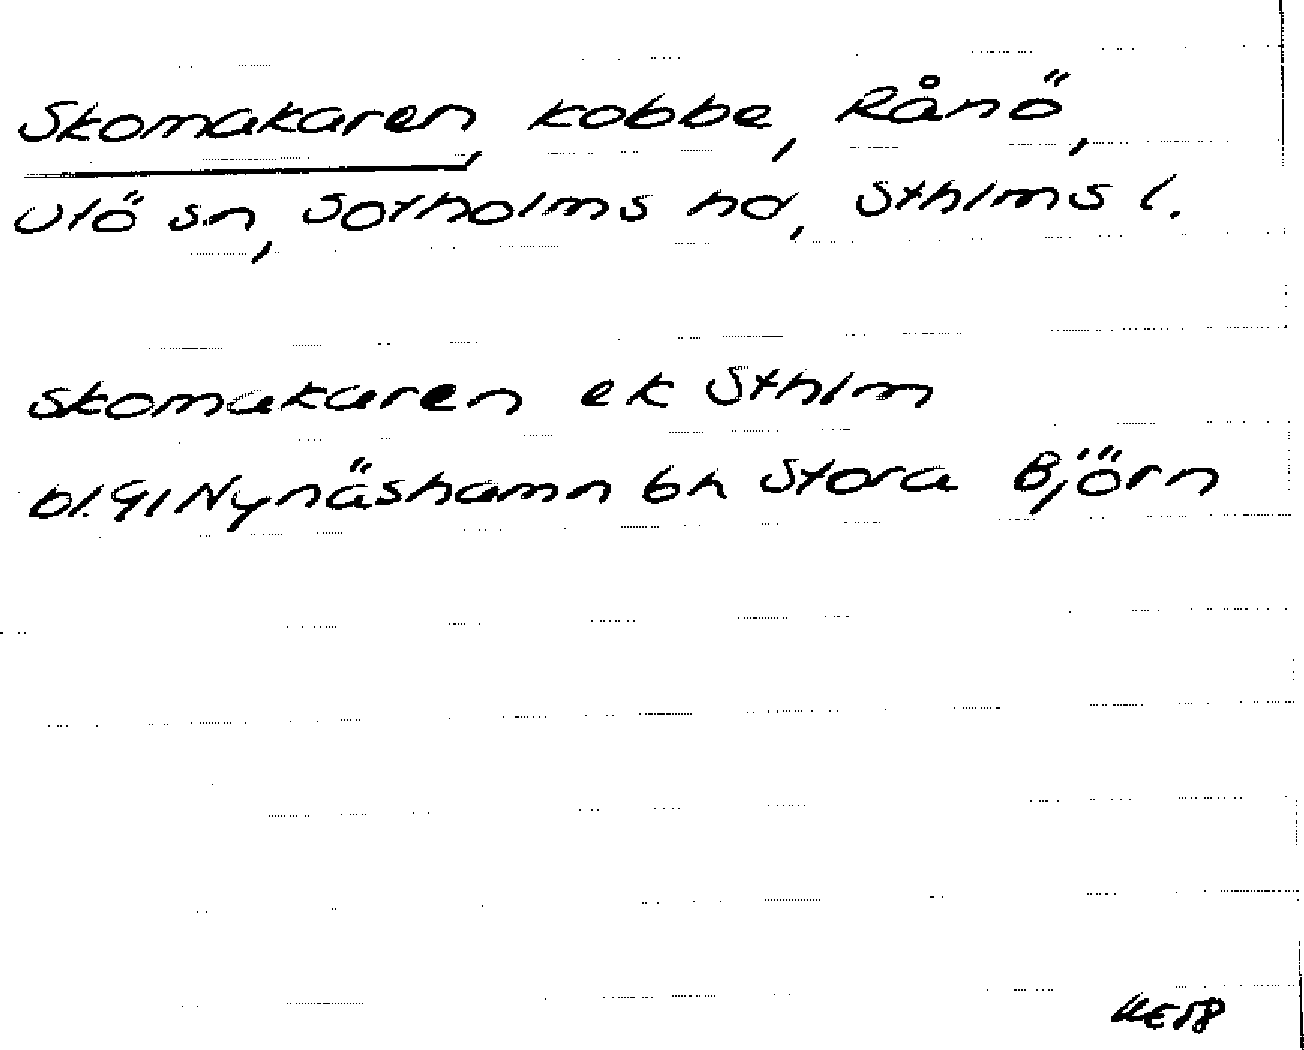 Skomakaren, kobbe, Rånö,
Utö sn, Sotholms hd, Sthlms l.
Skomakaren ek Sthlm
bl. 91 Nynäshamn bh Stora Björn